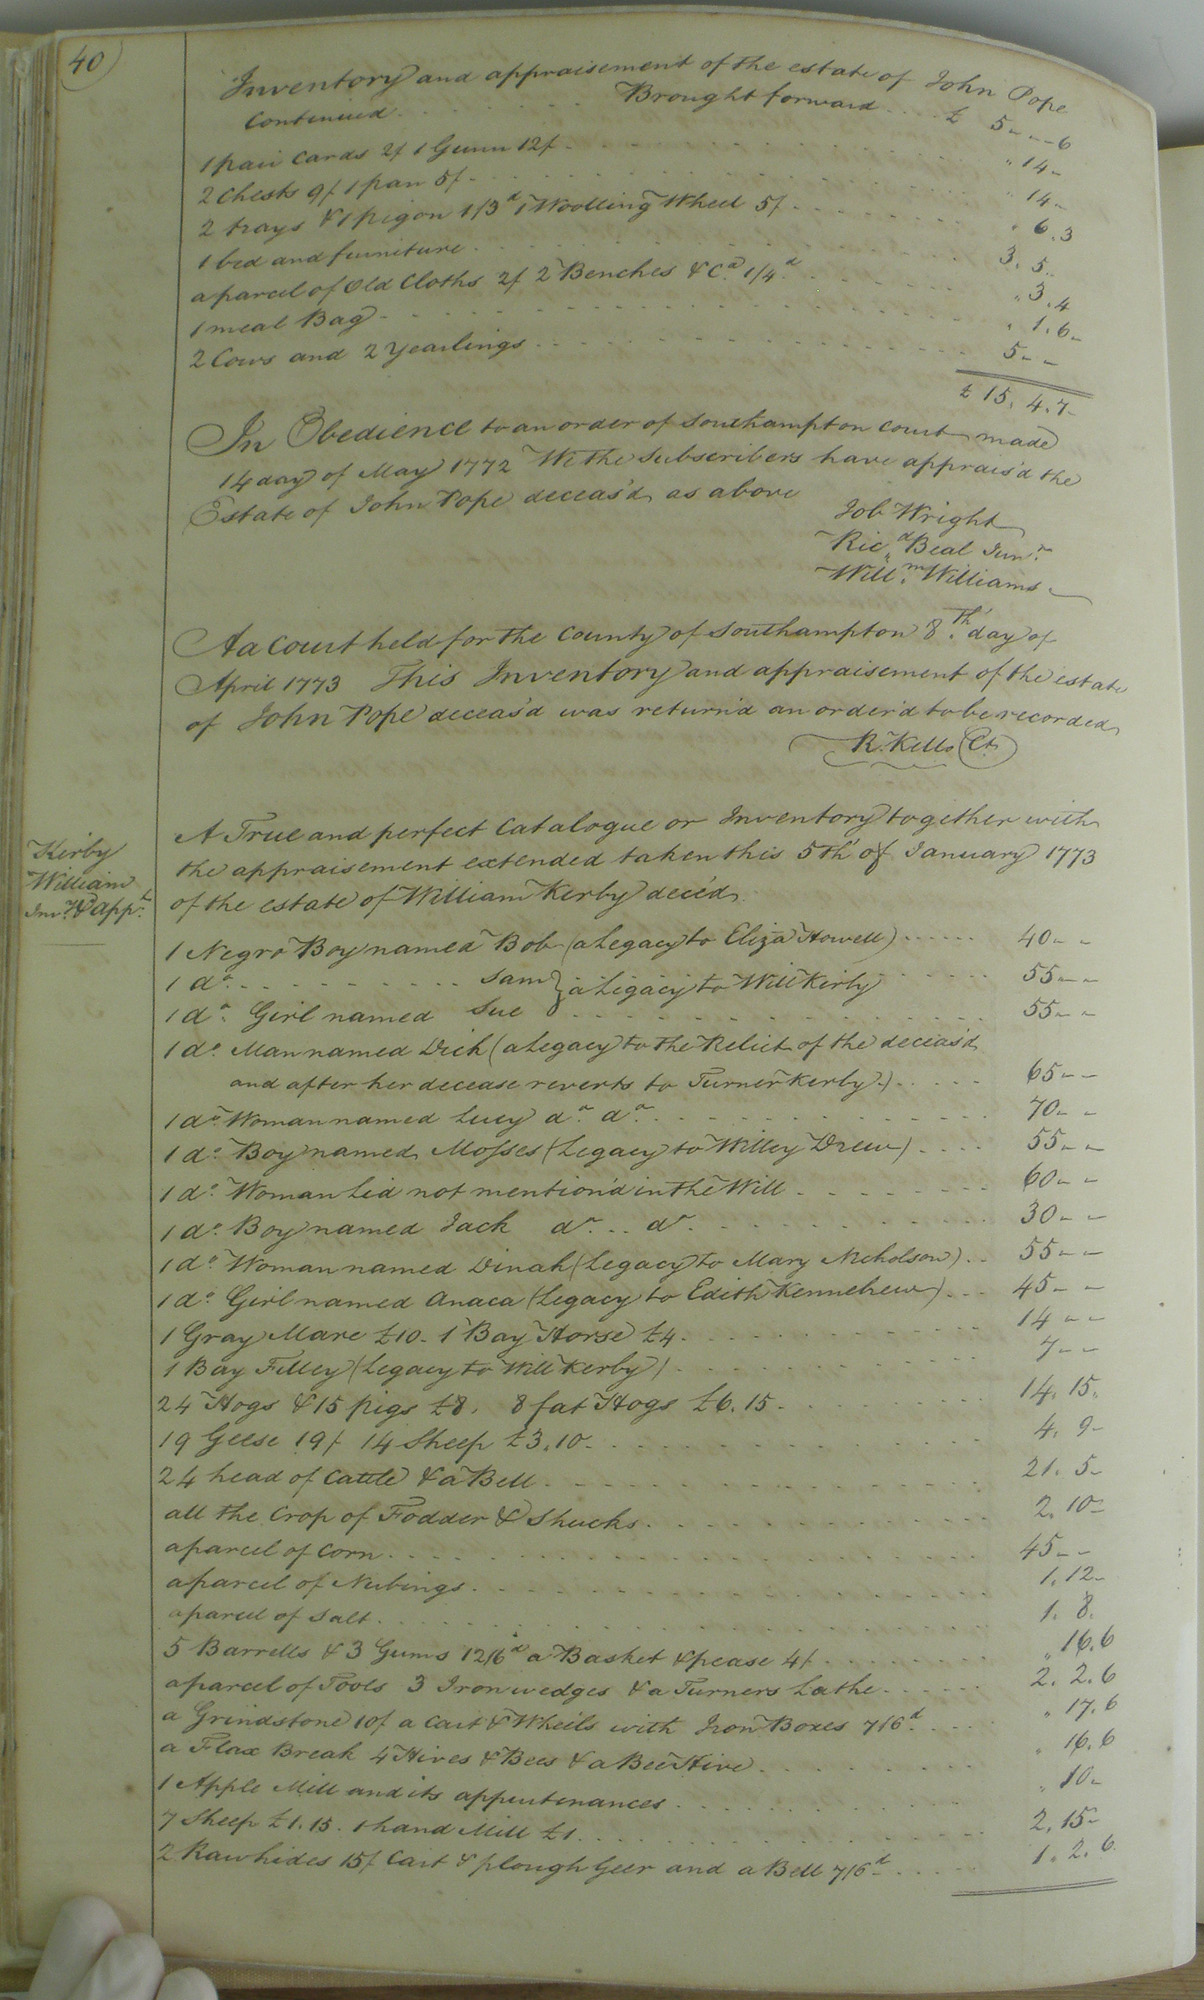 40
Inventory and appraisement of the estate of John Pope
continued . . . . . . Brought forward . . . . £ 5 - - 6
1 pair Cards 2/ 1 Gunn 12/ - . . . " 14 -
2 Chests 9/ 1 pan 5/ - . . . " 14 -
2 trays & 1 pigon 1/3d 1 Woolling Wheel 5/ - . . . " 6. 3
1 bed and furniture . . . 3. 5 -
a parcel of Old Cloths 2/ 2 Benches &Ca. 1/4d . . . " 3. 4
1 meal Bag - . . . " 1. 6 -
2 Cows and 2 Yearlings . . . 5 - -
£ 15. 4. 7 -
In Obedience to an order of Southampton court made
14 day of May 1772 We the Subscribers have apprais'd the
Estate of John Pope deceas'd as above
Job Wright
Ricd. Beal Junr.
Willm. Williams
Aa Court held for the County of Southampton 8th. day of
April 1773 This Inventory and appraisement of the estate
of John Pope deceas'd was return'd an order'd to be recorded
R. Kells Ct.
Kerby
William
Inv.y & appt.
A True and perfect Catalogue or Inventory together with
the appraisement extended taken this 5th of January 1773
of the estate of William Kerby dece'd
1 Negro Boy named Bob (a Legacy to Eliza Howell) . . . 40 - -
1 do. . . . Sam } a Legacy to Will Kerby . . . 55 - -
1 do. Girl named Sue . . . 55 - -
1 do. Man named Dick (a Legacy to the Relict of the deceas'd
and after her decease reverts to Turner Kerby.) . . . 65 - -
1 do. Woman named Lucy do. do. . . . 70 - -
1 do. Boy named Mosses (Legacy to Willey Drew) . . . 55 - -
1 do. Woman Lid not mention'd in the Will . . . 60 - -
1 do. Boy named Jack do. . . do. . . . 30 - -
1 do. Woman named Dinah (Legacy to Mary Nicholson) . . 55 - -
1 do. Girl named Anaca (Legacy to Edith Kennebrew) . . . 45 - -
1 Gray Mare £10 - 1 Bay Horse £4 . . . 14 - -
1 Bay Filley (Legacy to Will Kerby) . . . 7 - -
24 Hogs & 15 pigs £8. 8 fat Hogs £6. 15 - . . . 14. 15.
19 Geese 19/ 14 Sheep £3. 10 - . . . 4. 9 -
24 head of Cattle & a Bell . . . 21. 5 -
all the Crop of Fodder & Shucks . . . 2. 10 -
a parcel of Corn . . . 45 - -
a parcel of Nubings . . . 1. 12 -
a parcel of Salt . . . 1. 8.
5 Barrells & 3 Gums 12/6d a Basket & pease 4/ . . . " 16. 6
a parcel of Tools 3 Iron wedges & a Turners Lathe . . . 2. 2. 6
a Grindstone 10/ a Cart & Wheils with Iron Boxes 7/6d . . . " 17. 6
a Flax Break 4 Hives & Bees & a Bee Hive . . . " 16. 6
1 Apple Mill and its appurtenances . . . " 10 -
7 Sheep £1. 15. 1 hand Mill £1 . . . 2. 15 -
2 Rawhides 15/ Cart & plough Geer and a Bell 7/6d . . . 1. 2. 6